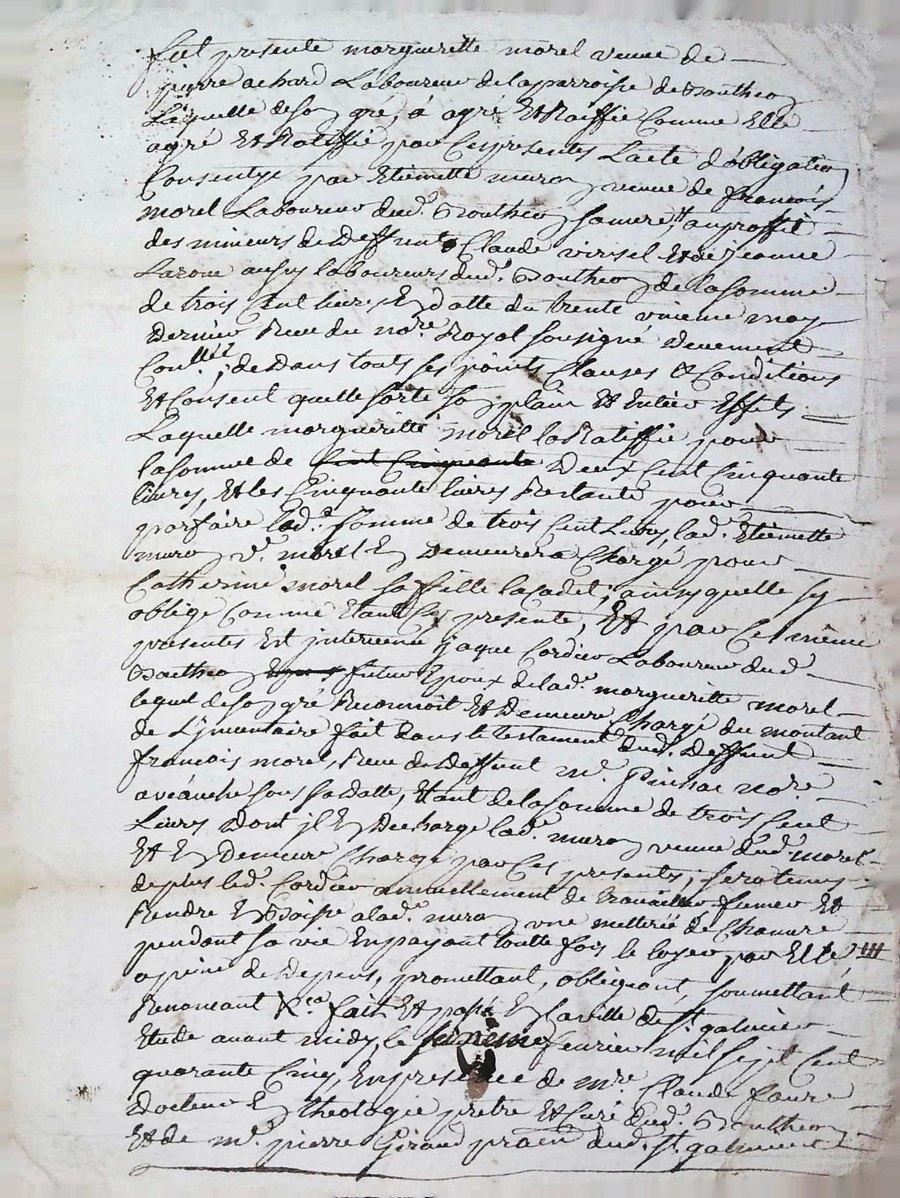 fut presente margueritte morel veuve de
pierre achard Laboureur de la parroisse de Boutheon
Laquelle de son gré, a agré Et Ratiffie Comme Elle
agré Et Ratiffie par Ces presentes Lacte d'obligation
Consentye par Etiennette muron veuve de francois
morel Laboureur dud. Boutheon sa mere, au proffit
des mineurs de Deffunt Claude virisel Et de Jeanne
Laroue aussy laboureurs dud. Boutheon de la somme
de trois Cent livres En datte du trente unieme may
dernier Receu du nore Royal sousigné Deuement
Conllé, de Dans touts ses points Clauses & Conditions
Et Consent quelle sorte son plain Et Entier Effets
Laquelle margueritte morel la Ratiffie pour
la somme de Cent Cinquante Deux Cent Cinquante
livres, Et les Cinquante livres Restante pour
parfaire lad. somme de trois Cent Livres, lad. Etiennette
muron ve. morel En Demeurera Chargé pour
Catherine morel sa fille la Cadet, ainsy quelle sy
oblige Comme Etant Cy presente, Et par Ces même
presentes Est intervenu jaque Cordier Laboureur dud.
Boutheon futur Epoux de lad. margueritte morel
lequel de son gré Reconnoit Et Demeure Chargé du montant
de L'jnventaire fait dans le testament dud. Deffunt
francois morel, Receu de Deffunt me. Pinhac nore
a veauche sous sa Datte, Etant de la somme de trois Cent
Livres Dont jl En Decharge lad. muron veuve dud. morel
Et En Demeure Chargé par Ces presentes, sera tenus
de plus led. Cordier annuellement de travailler fumer Et
Rendre En Boise a lad. muron une metterié de Chanure
pendant sa vie En payant toutte fois le loyer par Elle
a peine de Depens, promettant, obligeant, soumettant
Renoncant &ca fait Et passé En la ville de St. galmier
Etude avant midy le seizieme fevrier mil sept Cent
quarante Cinq, En presence de mre Claude faure
docteur En theologie pretre Et Curé dud. Boutheon
Et de me. pierre Giraud pratn dud. St. galmier